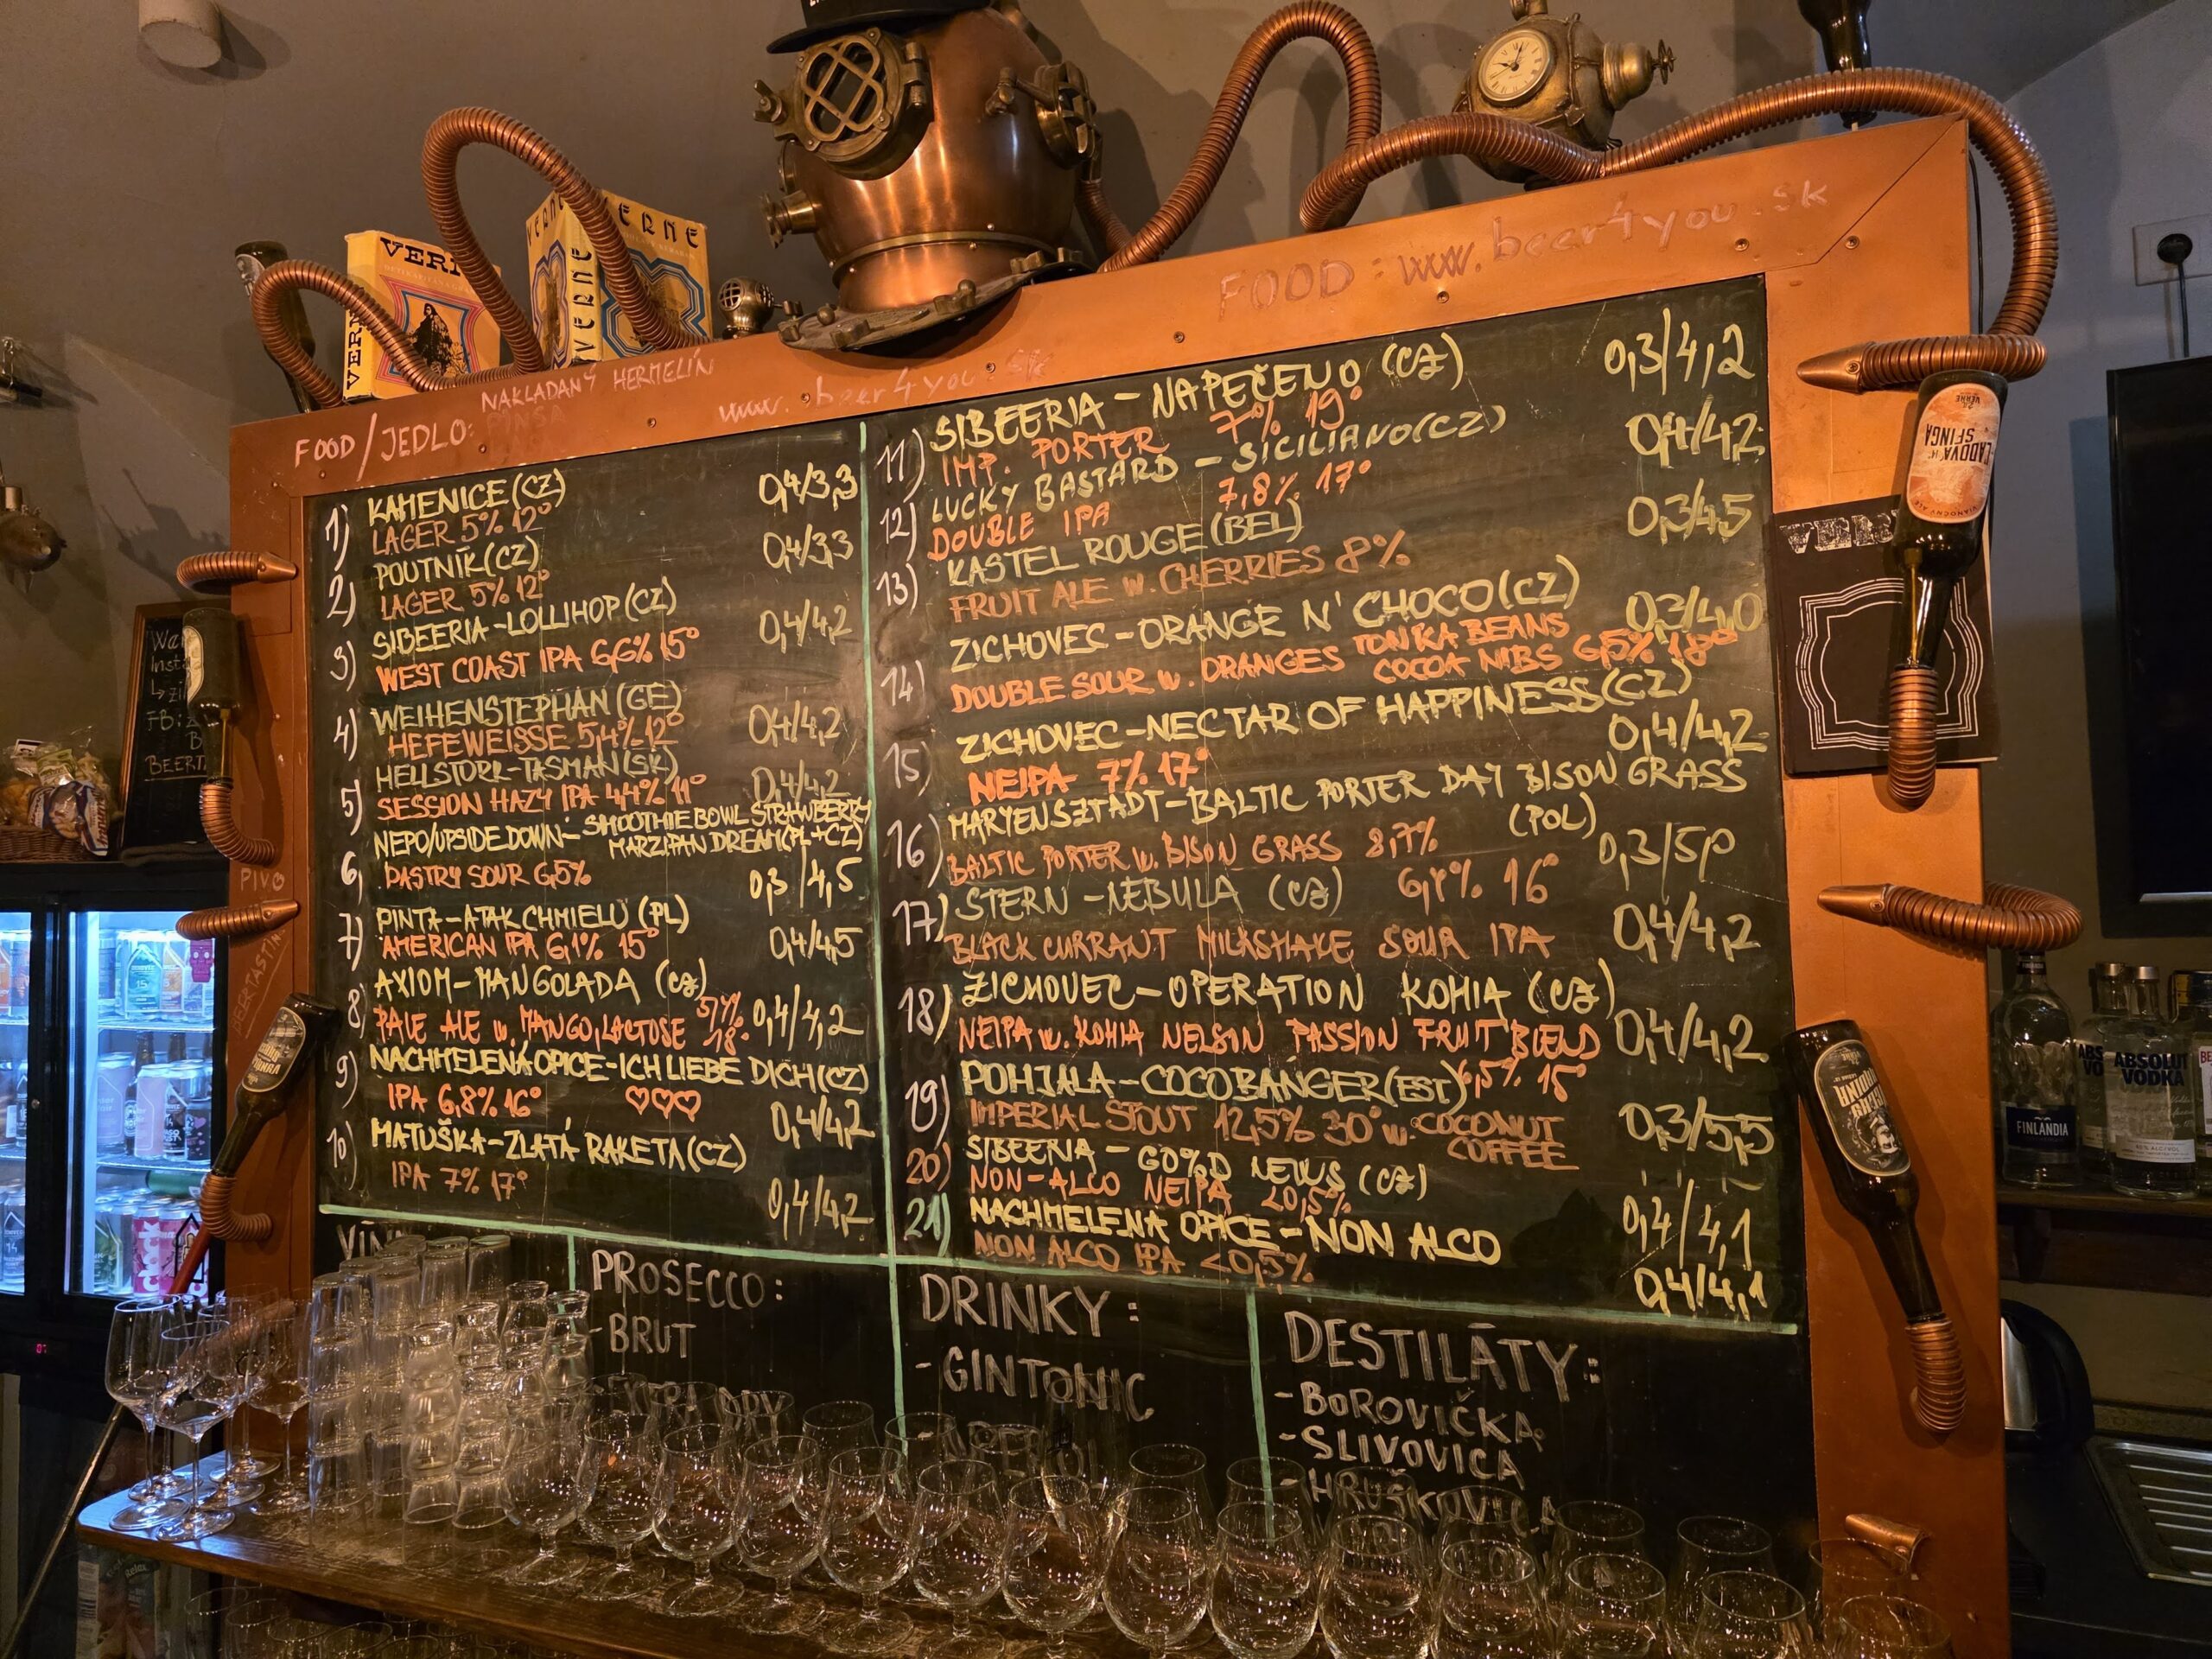 VERNE
VERNE
VERNE
FOOD: www.beer4you.sk
FOOD/JEDLO:
NAKLADANÝ HERMELÍN
PINSA
www.beer4you.sk
1) KAMENICE (CZ) 0,4/3,3
LAGER 5% 12°
2) POUTNÍK (CZ) 0,4/3,3
LAGER 5% 12°
3) SIBEERIA-LOLLIHOP (CZ) 0,4/4,2
WEST COAST IPA 6,6% 15°
4) WEIHENSTEPHAN (GE) 0,4/4,2
HEFEWEISSE 5,4% 12°
5) HELLSTORK-TASMAN (SK) 0,4/4,2
SESSION HAZY IPA 4,4% 11°
6, NEPO/UPSIDE DOWN - SMOOTHIE BOWL STRAWBERRY
MARZIPAN DREAM (PL+CZ)
PASTRY SOUR 6,5% 0,3/4,5
7) PINTA-ATAK CHMIELU (PL)
AMERICAN IPA 6,1% 15° 0,4/4,5
8) AXIOM-MANGOLADA (CZ)
PALE ALE w. MANGO, LACTOSE 5,4% 18° 0,4/4,2
9) NACHMELENÁ OPICE-ICH LIEBE DICH (CZ)
IPA 6,8% 16° ♡♡♡ 0,4/4,2
10) MATUŠKA-ZLATÁ RAKETA (CZ)
IPA 7% 17° 0,4/4,2
11) SIBEERIA - NAPEČENO (CZ) 0,3/4,2
IMP. PORTER 7% 19°
12) LUCKY BASTARD - SICILIANO (CZ) 0,4/4,2
DOUBLE IPA 7,8% 17°
13) KASTEL ROUGE (BEL) 0,3/4,5
FRUIT ALE w. CHERRIES 8%
14) ZICHOVEC-ORANGE N' CHOCO (CZ) 0,3/4,0
DOUBLE SOUR w. ORANGES TONKA BEANS
COCOA NIBS 6,5% 18°
15) ZICHOVEC-NECTAR OF HAPPINESS (CZ)
NEIPA 7% 17° 0,4/4,2
16) MARYENSZTADT-BALTIC PORTER DAY BISON GRASS
(POL)
BALTIC PORTER w. BISON GRASS 8,7% 0,3/5,0
17) STERN - NEBULA (CZ) 6,4% 16°
BLACK CURRANT MILKSHAKE SOUR IPA 0,4/4,2
18) ZICHOVEC - OPERATION KOHIA (CZ)
NEIPA w. KOHIA NELSON PASSION FRUIT BLEND 0,4/4,2
6,5% 15°
19) POHJALA-COCOBANGER (EST)
IMPERIAL STOUT 12,5% 30° w. COCONUT
COFFEE 0,3/5,5
20) SIBEERIA - GO%D NEWS (CZ)
NON-ALCO NEIPA <0,5% 0,4/4,1
21) NACHMELENÁ OPICE - NON ALCO
NON ALCO IPA <0,5% 0,4/4,1
PROSECCO:
- BRUT
- EXTRA DRY
DRINKY:
- GINTONIC
- APEROL
DESTILÁTY:
- BOROVIČKA
- SLIVOVICA
- HRUŠKOVICA
PIVO
BEERTASTING
BEERTA
ĽADOVÁ
SFINGA
VIANOČNÝ ALE
FINLANDIA
ABSOLUT
VODKA